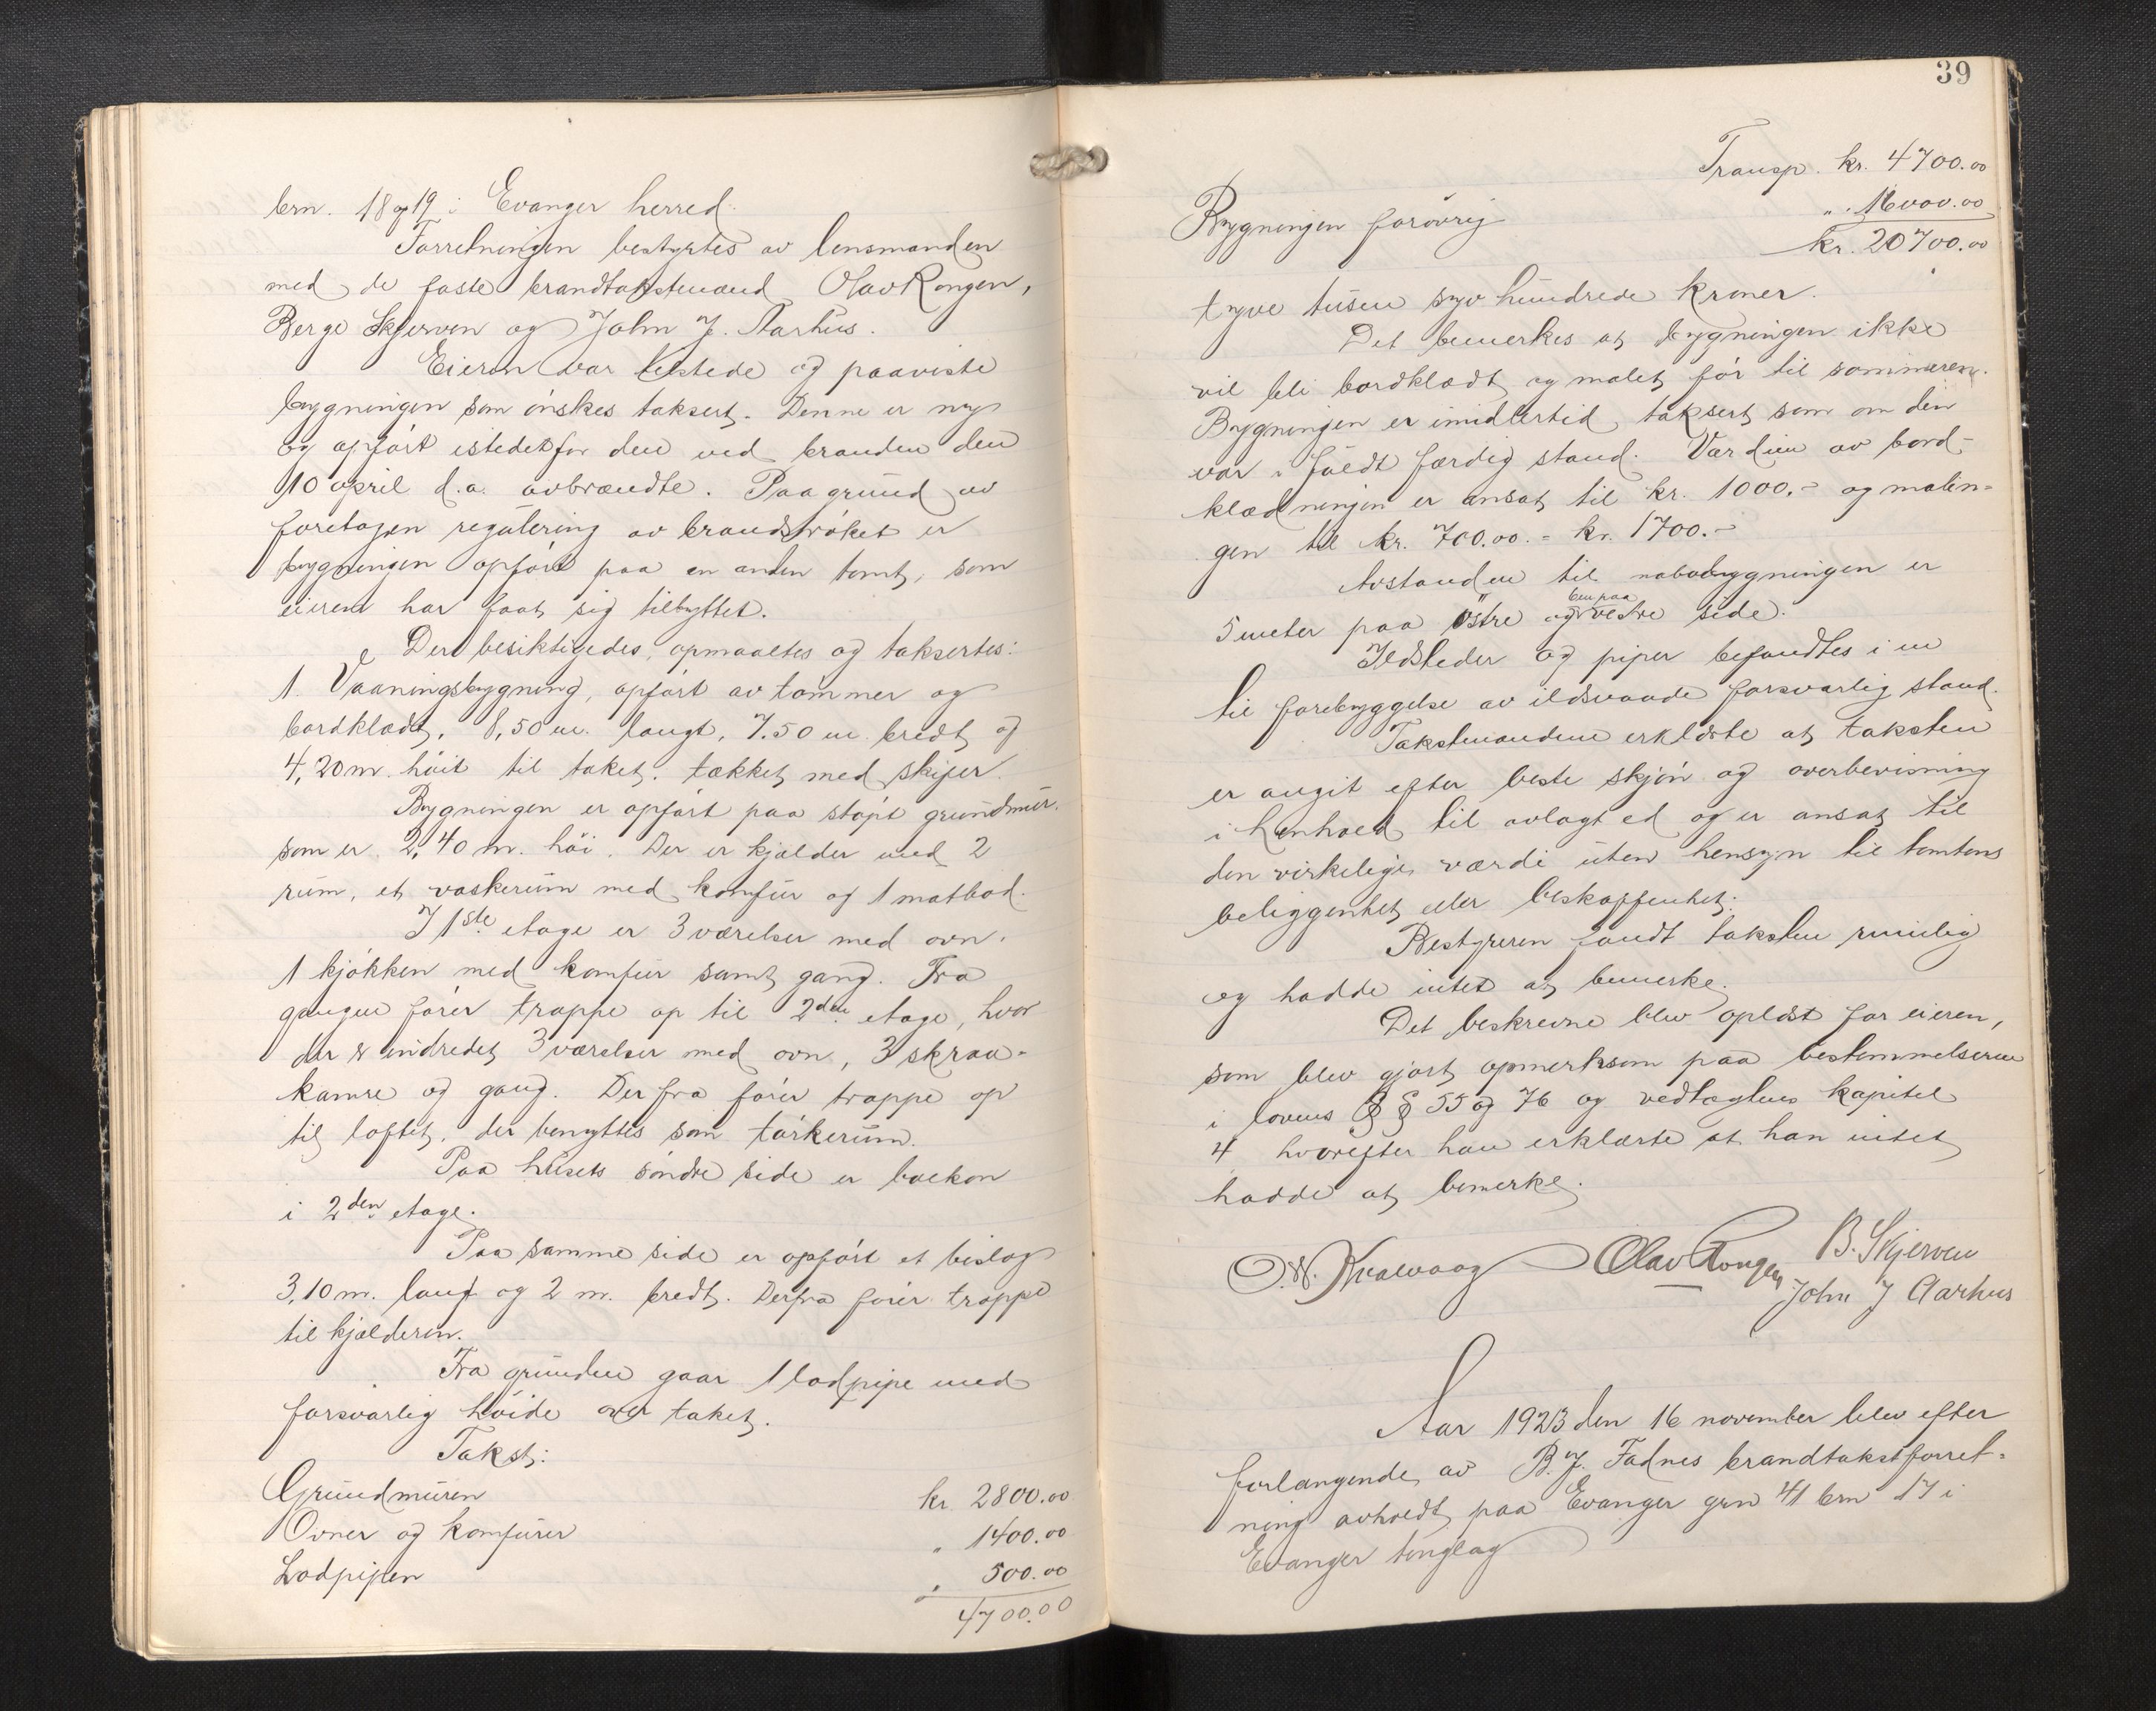 brn. 18 og 19 i Evanger herred.
Forretningen bestyrtes av lensmanden
med de faste brandtakstmænd Olav Rongen,
Berge Skjerven og John J. Aarhus.
Eieren var tilstede og paaviste
bygningen som ønskes taksert. Denne er ny
og opført istedetfor den ved branden den
10 april d.a. avbrændte. Paa grund av
foretagen regulering av brandstrøket er
bygningen opført paa en anden tomt, som
eieren har faat sig tilbyttet.
Der besiktigedes, opmaaltes og taksertes:
1. Vaaningsbygning, opført av tømmer og
bordklædt, 8,50 m. langt, 7.50 m. bredt og
4,20 m. høit til taket, tækket med skifer.
Bygningen er opført paa støpt grundmur.
som er 2,40 m. høi. Der er kjælder med 2
rum, et vaskerum med komfur og 1 matbod.
I 1ste etage er 3 værelser med ovn,
1 kjøkken med komfur samt gang. Fra
gangen fører trappe op til 2den etage, hvor
der er indredet 3 værelser med ovn, 3 skraa-
kamre og gang. Derfra fører trappe op
til loftet, der benyttes som tørkerum.
Paa husets søndre side er balkon
i 2den etage.
Paa samme side er opført et bislag
3,10 m. langt og 2 m. bredt. Derfra fører trappe
til kjælderen.
Fra grunden gaar 1 lodpipe med
forsvarlig høide over taket.
Takst:
Grundmuren kr 2800.00
Ovner og komfurer " 1400.00
Lodpipen " 500.00
4700.00
39
Transp. kr. 4700.00
Bygningen forøvrig " 16000.00
kr. 20700.00
tyve tusen syv hundrede kroner.
Det bemerkes at bygningen ikke
vil bli bordklædt og malet før til sommeren.
Bygningen er imidlertid taksert som om den
var i fuldt færdig stand. Værdien av bord-
klædningen er ansat til kr. 1000.- og malin-
gen til kr. 700.00. = kr. 1700.-
Avstanden til nabobygningen er
5 meter paa østre og 6m paa vestre side.
Ildsteder og piper befandtes i en
til forebyggelse av ildsvaade forsvarlig stand.
Takstmændene erklærte at taksten
er avgit efter beste skjøn og overbevisning
i henhold til avlagt ed og er ansat til
den virkelige værdi uten hensyn til tomtens
beliggenhet eller beskaffenhet.
Bestyreren fandt taksten rimelig
og hadde intet at bemerke.
Det beskrevne blev oplæst for eieren,
som blev gjort opmerksom paa bestemmelserne
i lovens § § 55 og 76 og vedtægtens kapitel
4 hvorefter han erklærte at han intet
hadde at bemerke.
O. W. Kvalvaag Olav Rongen B. Skjerven
John J Aarhus
Aar 1923 den 16 november blev efter
forlangende av B. J. Fadnes brandtakstforret-
ning avholdt paa Evanger grn 41 brn 17 i
Evanger tinglag